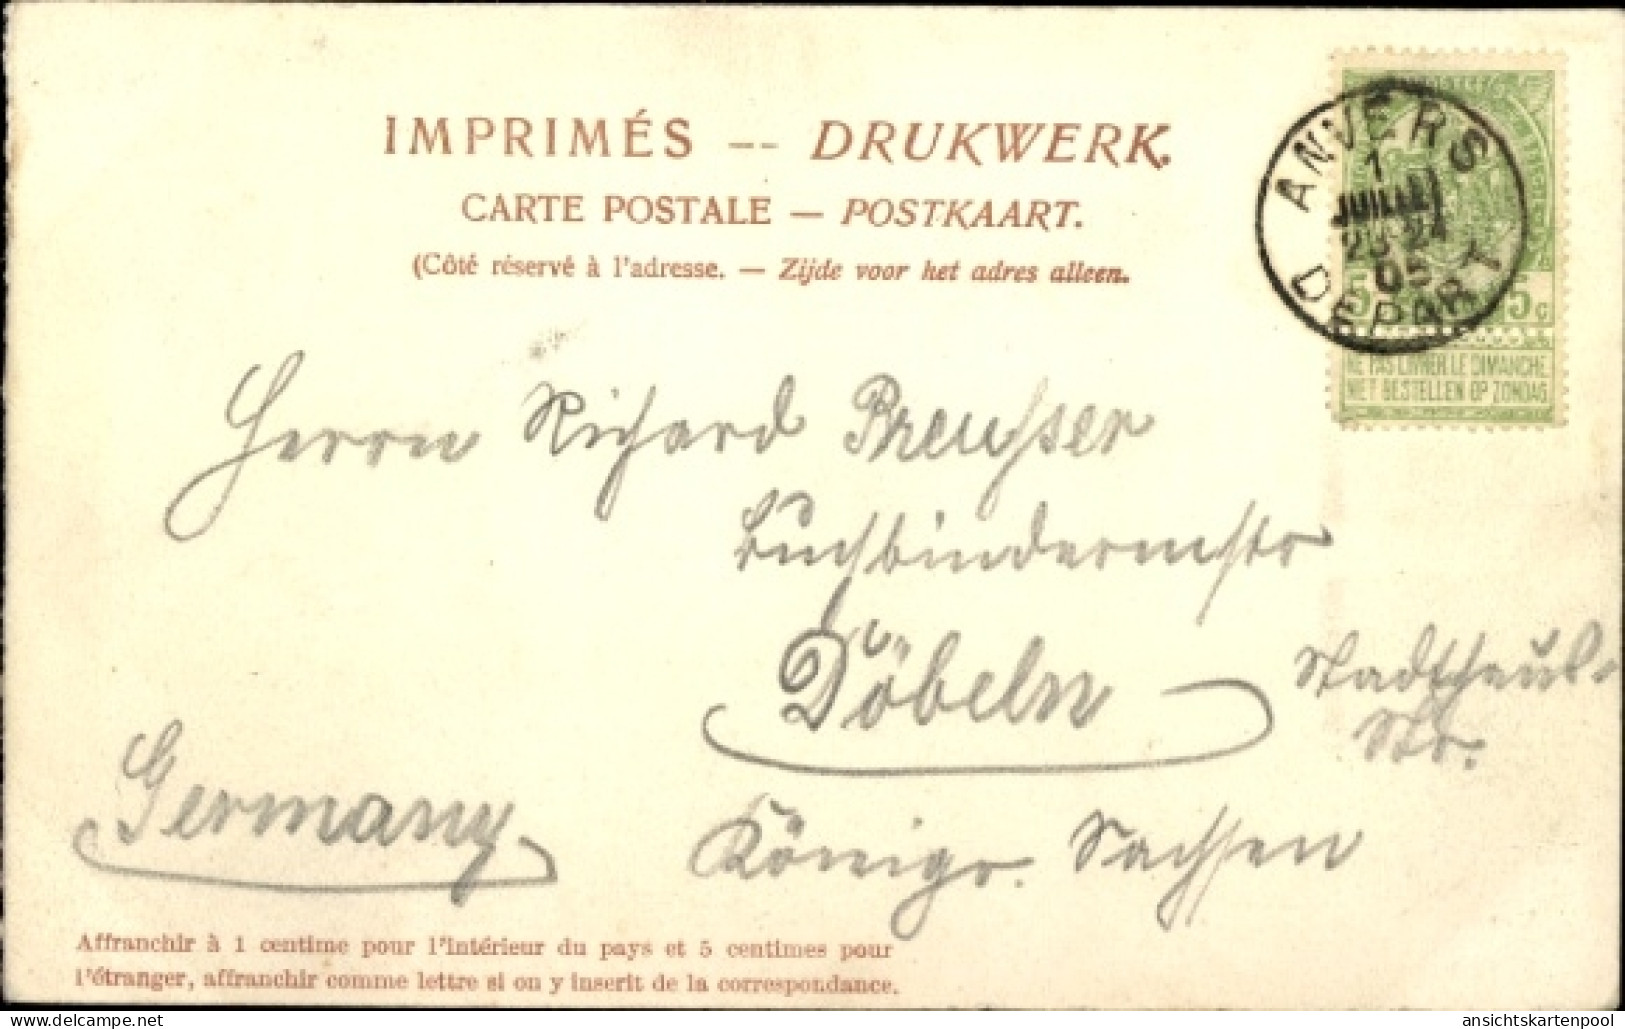 IMPRIMÉS -- DRUKWERK.
CARTE POSTALE — POSTKAART.
(Côté réservé à l'adresse. — Zijde voor het adres alleen.
ANVERS
1
JUILLET
23-24
05
DEPART
5 5c
NE PAS LIVRER LE DIMANCHE
NIET BESTELLEN OP ZONDAG
Herrn Richard Preusser
Buchbindermstr
Döbeln
Stadthaus-
Str.
Germany
Königr. Sachsen
Affranchir à 1 centime pour l'intérieur du pays et 5 centimes pour
l'étranger, affranchir comme lettre si on y inserit de la correspondance.
akpool.de
ansichtskartenpool